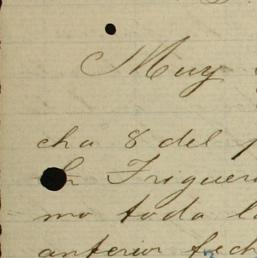 Muy
cha 8 del
Triguer
mo toda l
anterior fech